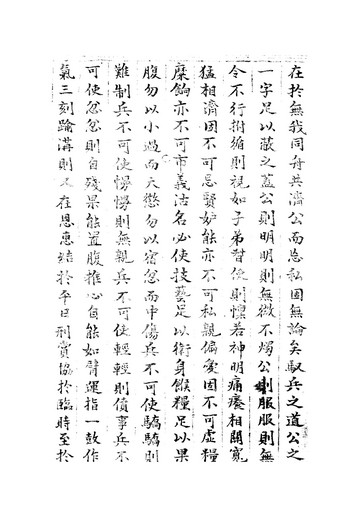 在於無我同舟共濟公而忘私固無論矣馭兵之道公之
一字足以蔽之蓋公則明明則無微不燭公則服服則無
令不行拊循則視如子弟督使則懔若神明痛癢相關寬
猛相濟固不可忌賢妒能亦不可私親偏愛固不可虛糧
糜餉亦不可市義沽名必使技藝足以衛身餱糧足以果
腹勿以小過而大懲勿以宿忿而中傷兵不可使驕驕則
難制兵不可使慢慢則無親兵不可使輕輕則僨事兵不
可使忿忿則自殘果能置腹推心自能如臂運指一鼓作
氣三刻踰溝則又在恩惠結於平日刑賞協於臨時至於